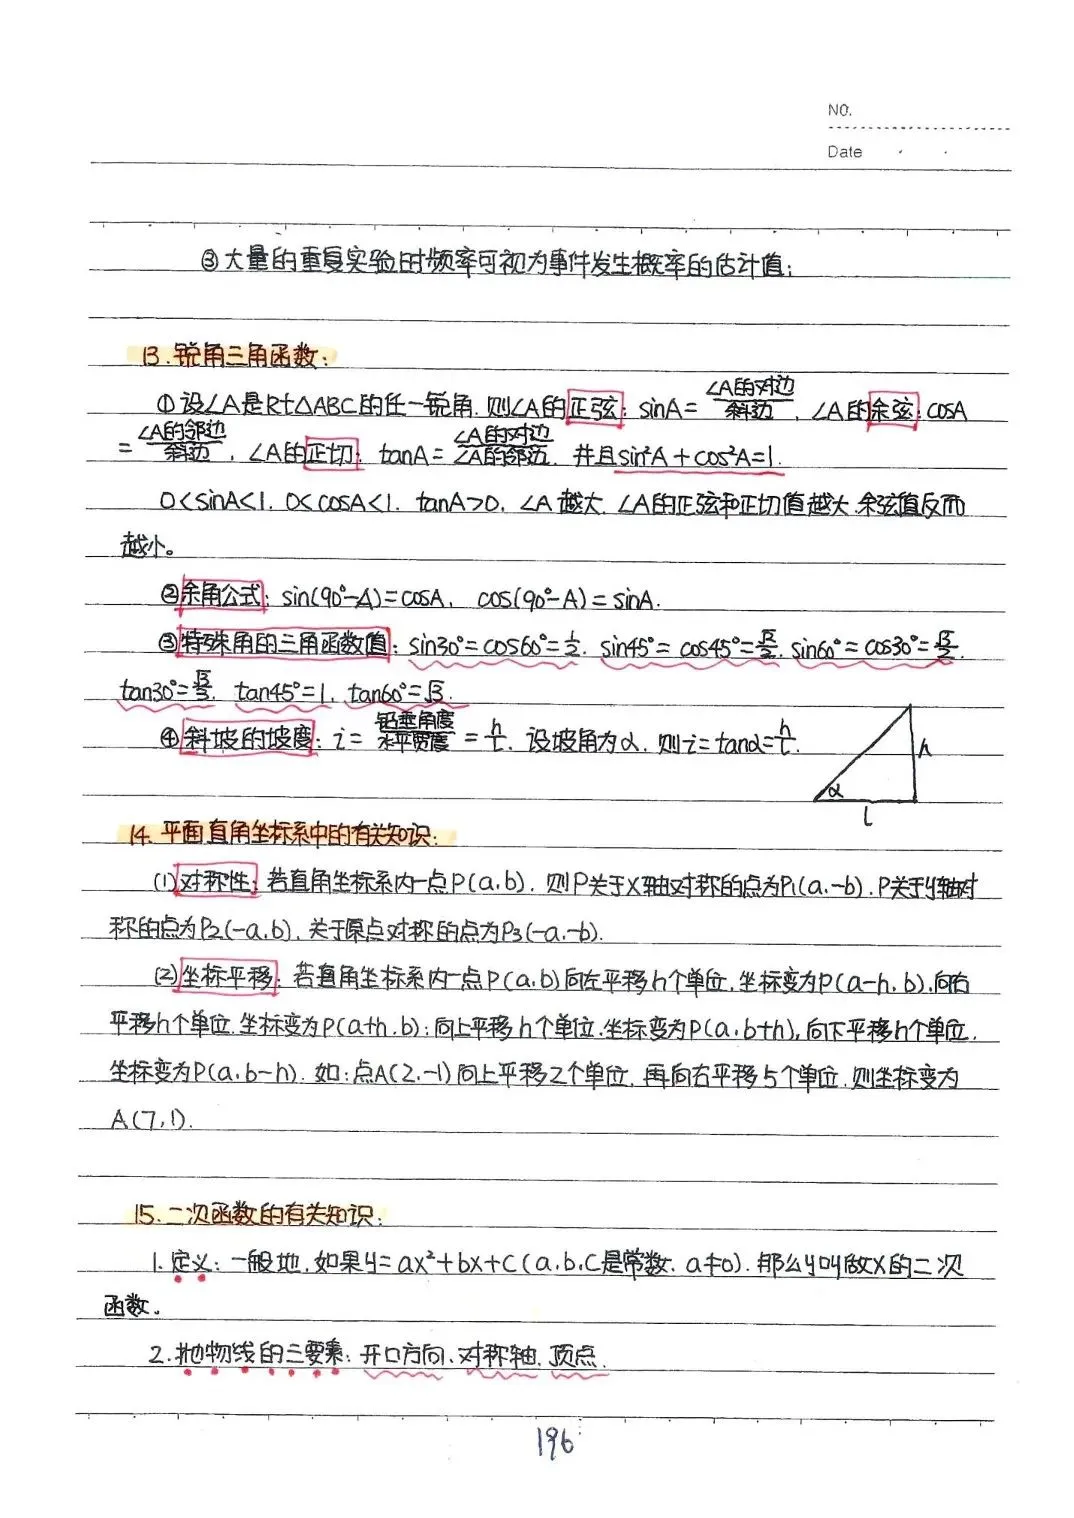 NO.
Date
③大量的重复实验时频率可视为事件发生概率的估计值;
13.锐角三角函数:
①设∠A是Rt△ABC的任一锐角,则∠A的正弦: sinA=∠A的对边/斜边, ∠A的余弦: cosA
=∠A的邻边/斜边, ∠A的正切: tanA=∠A的对边/∠A的邻边. 并且sin²A+cos²A=1.
0<sinA<1. 0<cosA<1. tanA>0. ∠A越大. ∠A的正弦和正切值越大,余弦值反而
越小。
②余角公式: sin(90°-A)=cosA, cos(90°-A)=sinA.
③特殊角的三角函数值: sin30°=cos60°=1/2. sin45°=cos45°=√2/2. sin60°=cos30°=√3/2.
tan30°=√3/3. tan45°=1. tan60°=√3.
④斜坡的坡度: i=铅垂角度/水平宽度=h/l. 设坡角为α. 则i=tanα=h/l.
h
α
l
14.平面直角坐标系中的有关知识:
(1)对称性: 若直角坐标系内一点P(a,b). 则P关于X轴对称的点为P₁(a,-b). P关于y轴对
称的点为P₂(-a,b), 关于原点对称的点为P₃(-a,-b).
(2)坐标平移: 若直角坐标系内一点P(a,b)向左平移h个单位,坐标变为P(a-h,b),向右
平移h个单位.坐标变为P(a+h,b);向上平移h个单位.坐标变为P(a,b+h),向下平移h个单位,
坐标变为P(a,b-h). 如:点A(2,-1)向上平移2个单位,再向右平移5个单位.则坐标变为
A(7,1).
15.二次函数的有关知识:
1.定义: 一般地,如果y=ax²+bx+c(a,b,c是常数, a≠0). 那么y叫做x的二次
函数。
2.抛物线的三要素: 开口方向、对称轴、顶点.
196